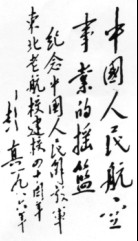 中國人民航空
事業的摇籃
紀念中国人民解放軍
東北老航校建校四十周年
彭真一九八六年